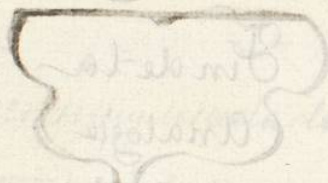 Fin de la
Analogia